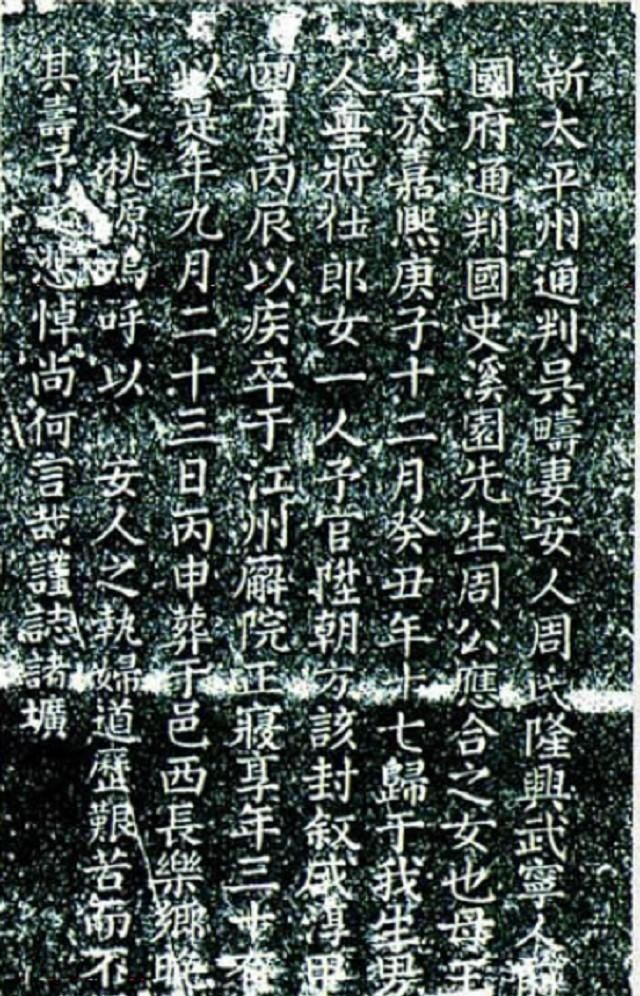 新太平州通判吳疇妻安人周氏隆興武寧人前
國府通判國史溪園先生周公應合之女也母王
生於嘉熙庚子十二月癸丑年十七歸于我生男
人垔將仕郎女一人予官陞朝方該封敘咸淳甲
四月丙辰以疾卒于江州廨院正寢享年三十有
以是年九月二十三日丙申葬于邑西長樂鄉
社之桃源嗚呼以安人之執婦道歷艱苦而不
其壽予之悲悼尚何言哉謹誌諸壙